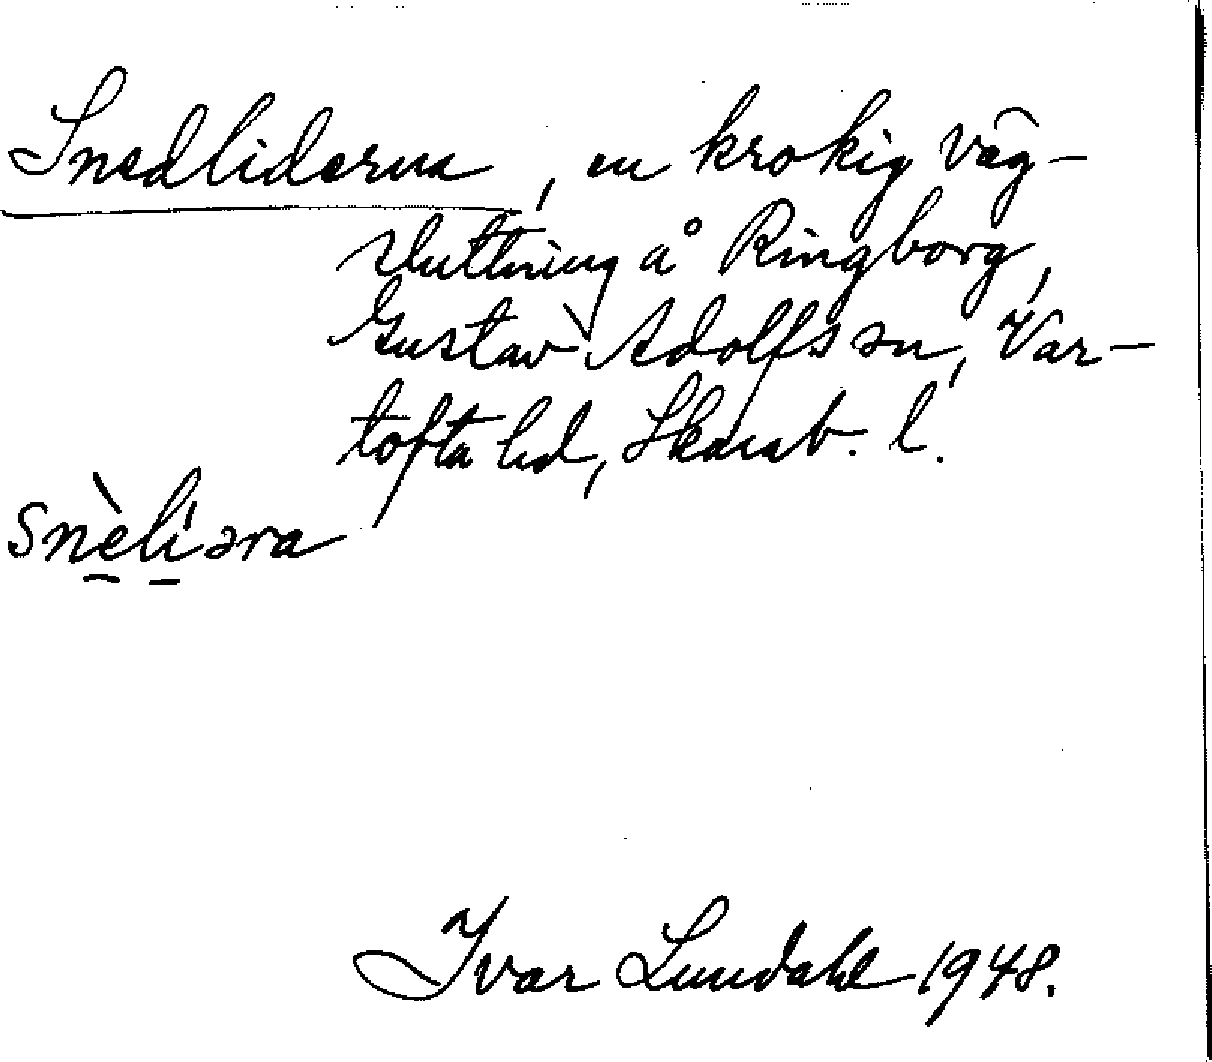 Snedliderna, en krokig väg-
sluttning å Ringborg,
Gustav Adolfs sn, Var-
tofta hd, Skarab. l.
snèlíəra
Ivar Lundahl 1948.